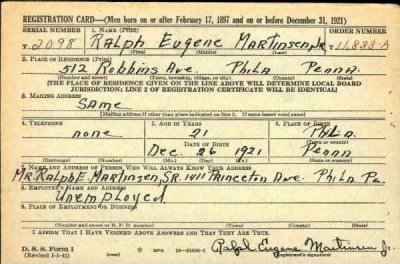 REGISTRATION CARD—(Men born on or after February 17, 1897 and on or before December 31, 1921)
SERIAL NUMBER 1. NAME (Print) ORDER NUMBER
T. 2098 Ralph Eugene Martinsen, Jr. T. 11,833-A
(First) (Middle) (Last)
2. PLACE OF RESIDENCE (Print)
512 Robbins Ave Phila Penna.
(Number and street) (Town, township, village, or city) (County) (State)
[THE PLACE OF RESIDENCE GIVEN ON THE LINE ABOVE WILL DETERMINE LOCAL BOARD
JURISDICTION; LINE 2 OF REGISTRATION CERTIFICATE WILL BE IDENTICAL]
3. MAILING ADDRESS
SAME
[Mailing address if other than place indicated on line 2. If same insert word same]
4. TELEPHONE 5. AGE IN YEARS 6. PLACE OF BIRTH
none 21 Phila.
DATE OF BIRTH (Town or county)
Dec. 26 1921 Penna
(Exchange) (Number) (Mo.) (Day) (Yr.) (State or country)
7. NAME AND ADDRESS OF PERSON WHO WILL ALWAYS KNOW YOUR ADDRESS
Mr. Ralph E. Martinsen, SR. 1411 Princeton Ave. Phila Pa.
8. EMPLOYER'S NAME AND ADDRESS
Unemployed
9. PLACE OF EMPLOYMENT OR BUSINESS
(Number and street or R. F. D. number) (Town) (County) (State)
I AFFIRM THAT I HAVE VERIFIED ABOVE ANSWERS AND THAT THEY ARE TRUE.
D. S. S. Form 1 GPO 16—21630-1 Ralph Eugene Martinsen Jr.
(Revised 1-1-42) (over) (Registrant's signature)